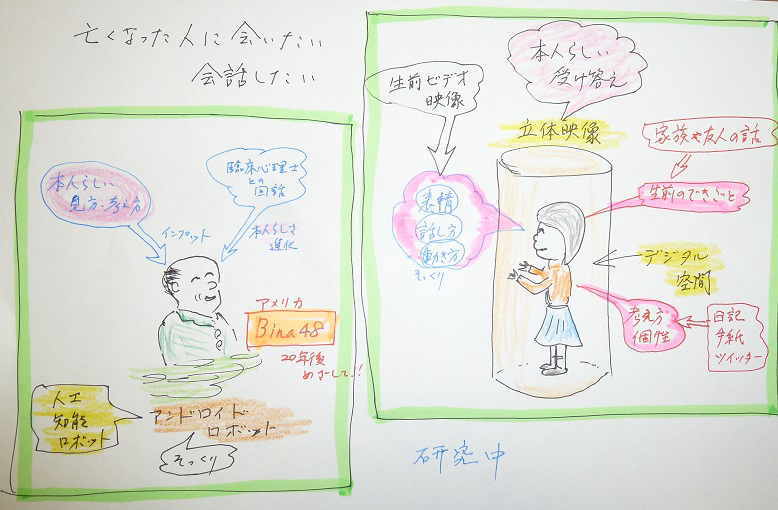 亡くなった人に会いたい
会話したい
本人らしい
見方・考え方
臨床心理士
との
会話
インプット
本人らしさ
進化
アメリカ
Bina48
20年後
めざして!!
人工
知能
ロボット
アンドロイド
ロボット
そっくり
生前ビデオ
映像
本人らしい
受け答え
立体映像
家族や友人の話
生前のできごと
表情
話し方
動き方
そっくり
デジタル
空間
考え方
個性
日記
手紙
ツイッター
研究中